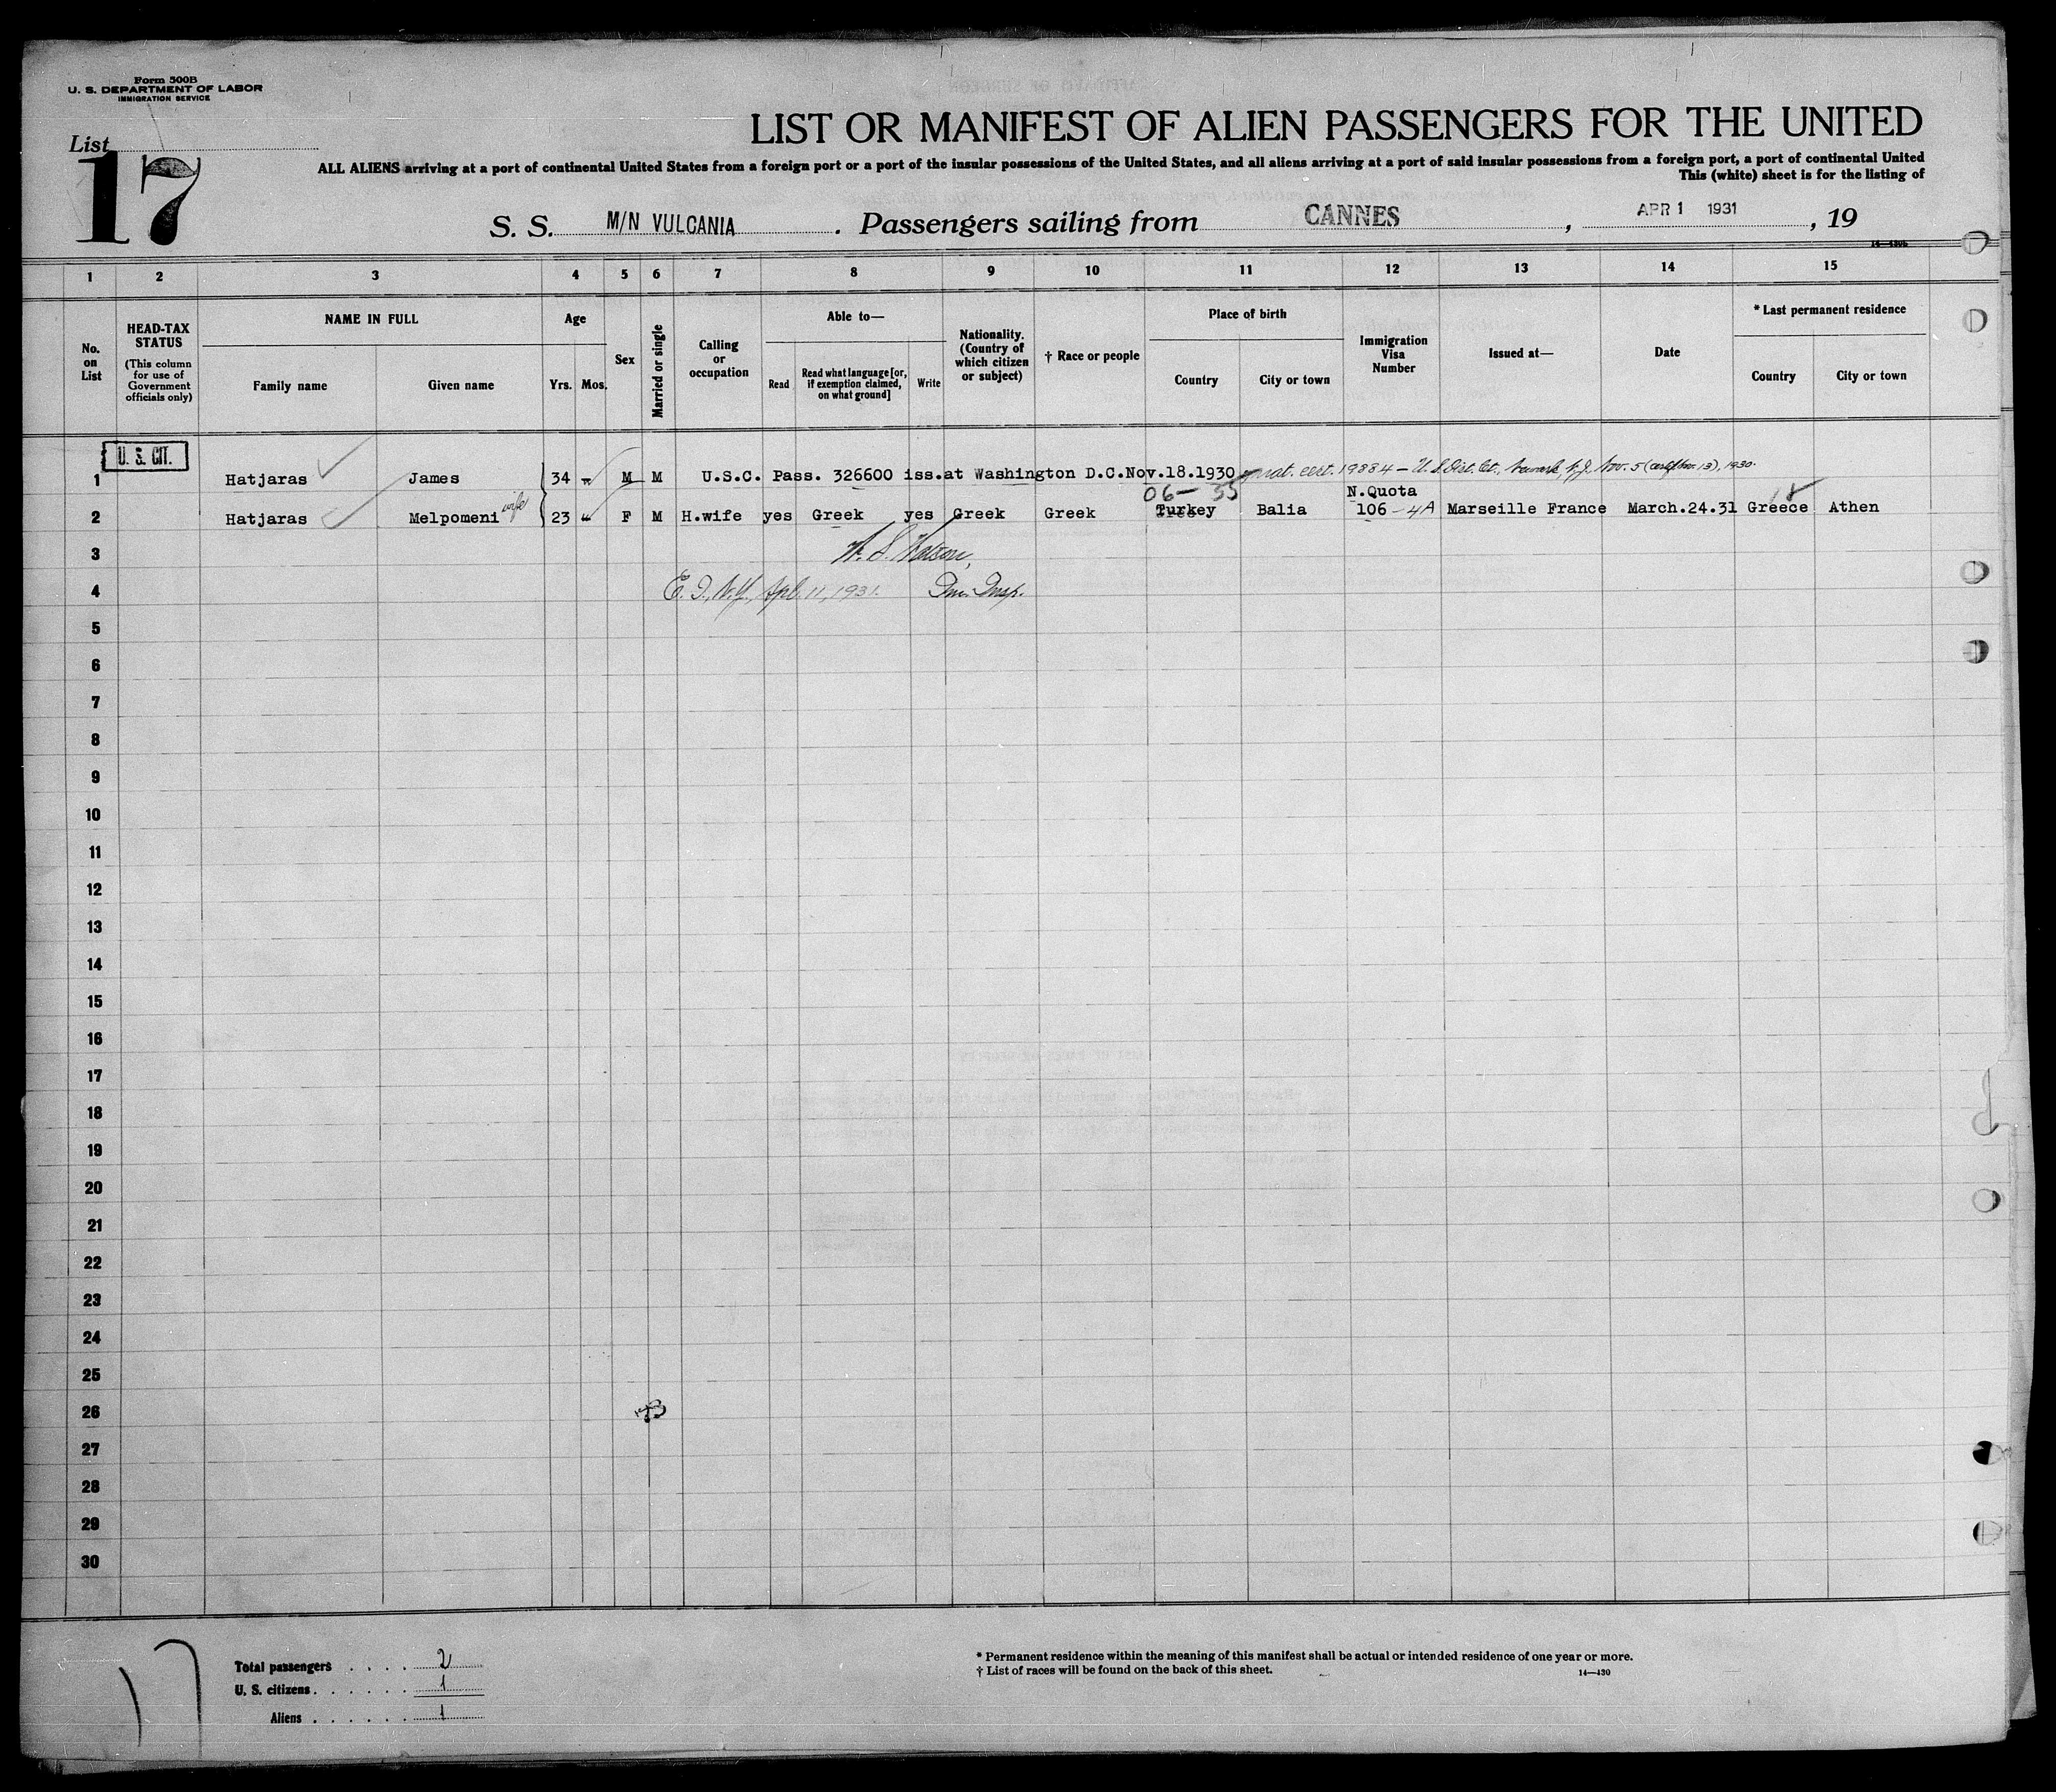 Form 500B
U. S. DEPARTMENT OF LABOR
IMMIGRATION SERVICE
List
17
LIST OR MANIFEST OF ALIEN PASSENGERS FOR THE UNITED
ALL ALIENS arriving at a port of continental United States from a foreign port or a port of the insular possessions of the United States, and all aliens arriving at a port of said insular possessions from a foreign port, a port of continental United
This (white) sheet is for the listing of
S. S. M/N VULCANIA . Passengers sailing from CANNES , APR 1 1931 , 19
1 2 3 4 5 6 7 8 9 10 11 12 13 14 15
No. on List
HEAD-TAX STATUS
(This column for use of Government officials only)
NAME IN FULL
Family name Given name
Age
Yrs. Mos.
Sex
Married or single
Calling or occupation
Able to—
Read
Read what language [or, if exemption claimed, on what ground]
Write
Nationality. (Country of which citizen or subject)
† Race or people
Place of birth
Country City or town
Immigration Visa Number
Issued at—
Date
* Last permanent residence
Country City or town
U. S. CIT.
1 Hatjaras James 34 - M M U.S.C. Pass. 326600 iss.at Washington D.C.Nov.18.1930 nat. cert. 19884 — U.S. Dist. Ct., Newark, N.J. Nov. 5 13), 1930.
06— 35 N.Quota 18
2 Hatjaras Melpomeni wife 23 - F M H.wife yes Greek yes Greek Greek Turkey Balia 106 -4A Marseille France March.24.31 Greece Athen
3 W. S. Watson,
4 E. I., N.Y., Apl. 11, 1931. Im. Insp.
5
6
7
8
9
10
11
12
13
14
15
16
17
18
19
20
21
22
23
24
25
26
27
28
29
30
17
Total passengers . . . . 2
U. S. citizens . . . . . . 1
Aliens . . . . . . 1
* Permanent residence within the meaning of this manifest shall be actual or intended residence of one year or more.
† List of races will be found on the back of this sheet.
14—430